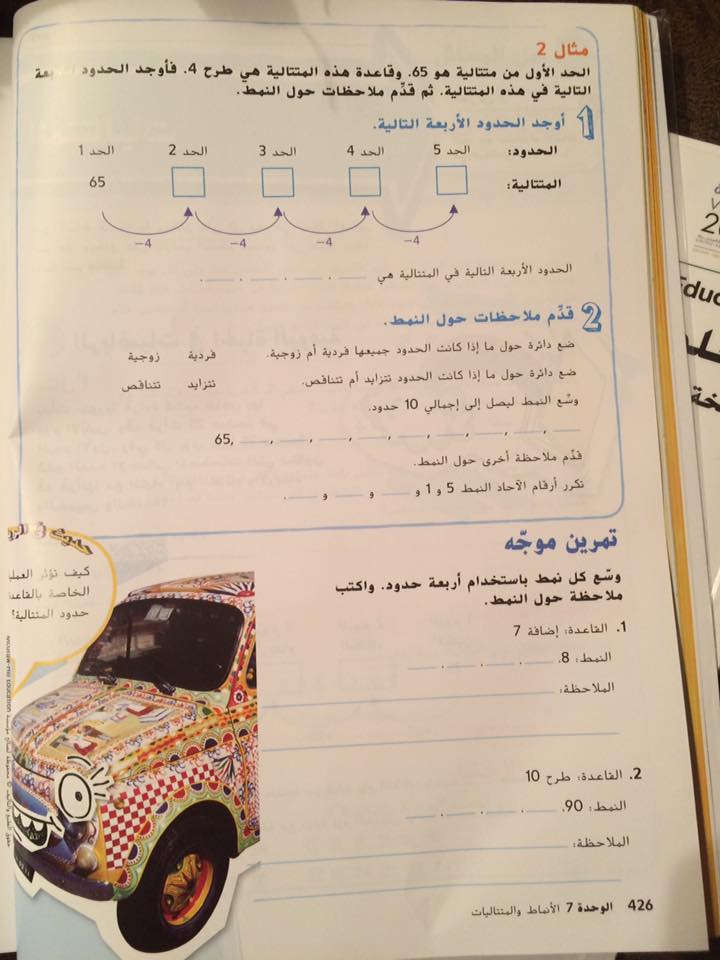 مثال 2
الحد الأول من متتالية هو 65. وقاعدة هذه المتتالية هي طرح 4. فأوجد الحدود
التالية في هذه المتتالية. ثم قدّم ملاحظات حول النمط.
1 أوجد الحدود الأربعة التالية.
الحدود: الحد 1 الحد 2 الحد 3 الحد 4 الحد 5
المتتالية: 65
−4 −4 −4 −4
الحدود الأربعة التالية في المتتالية هي ____ . ____ . ____ . ____ .
2 قدّم ملاحظات حول النمط.
ضع دائرة حول ما إذا كانت الحدود جميعها فردية أم زوجية. فردية زوجية
ضع دائرة حول ما إذا كانت الحدود تتزايد أم تتناقص. تتزايد تتناقص
وسّع النمط ليصل إلى إجمالي 10 حدود.
65, ____, ____, ____, ____, ____, ____, ____, ____, ____
قدّم ملاحظة أخرى حول النمط.
تكرر أرقام الآحاد النمط 5 و 1 و ____ و ____ و ____.
تمرين موجّه
وسّع كل نمط باستخدام أربعة حدود. واكتب
ملاحظة حول النمط.
1. القاعدة: إضافة 7
النمط: 8. ____ . ____ . ____ . ____
الملاحظة:
2. القاعدة: طرح 10
النمط: 90. ____ . ____ . ____ . ____
الملاحظة:
كيف تؤثر
الخاصة
حدود المتتالية؟
حقوق الطبع والتأليف © محفوظة لصالح مؤسسة McGraw-Hill Education
426 الوحدة 7 الأنماط والمتتاليات